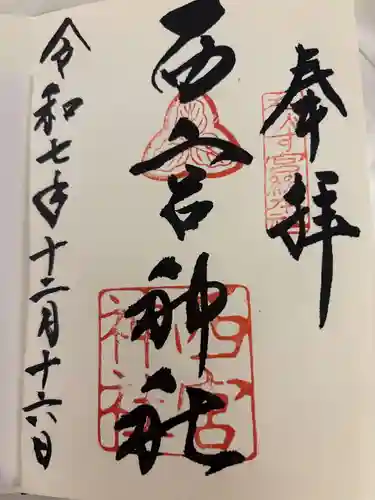 奉拝
西宮神社
西宮神社
令和七年十二月十六日